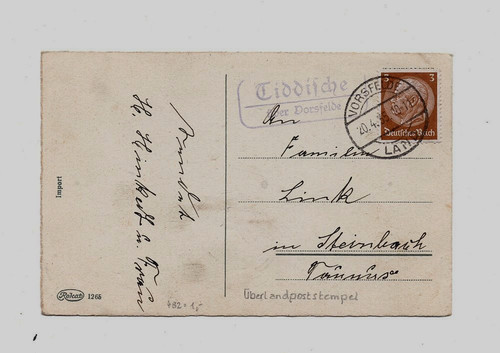 Tiddische
über Vorsfelde
3 3
Deutsches Reich
VORSFELDE
20.4.3
LAND
An
Familie
Link
in Steinbach
Taunus
Absender
H. Hinkert u. Frau
Import
Rodeat 1265
Überlandpoststempel